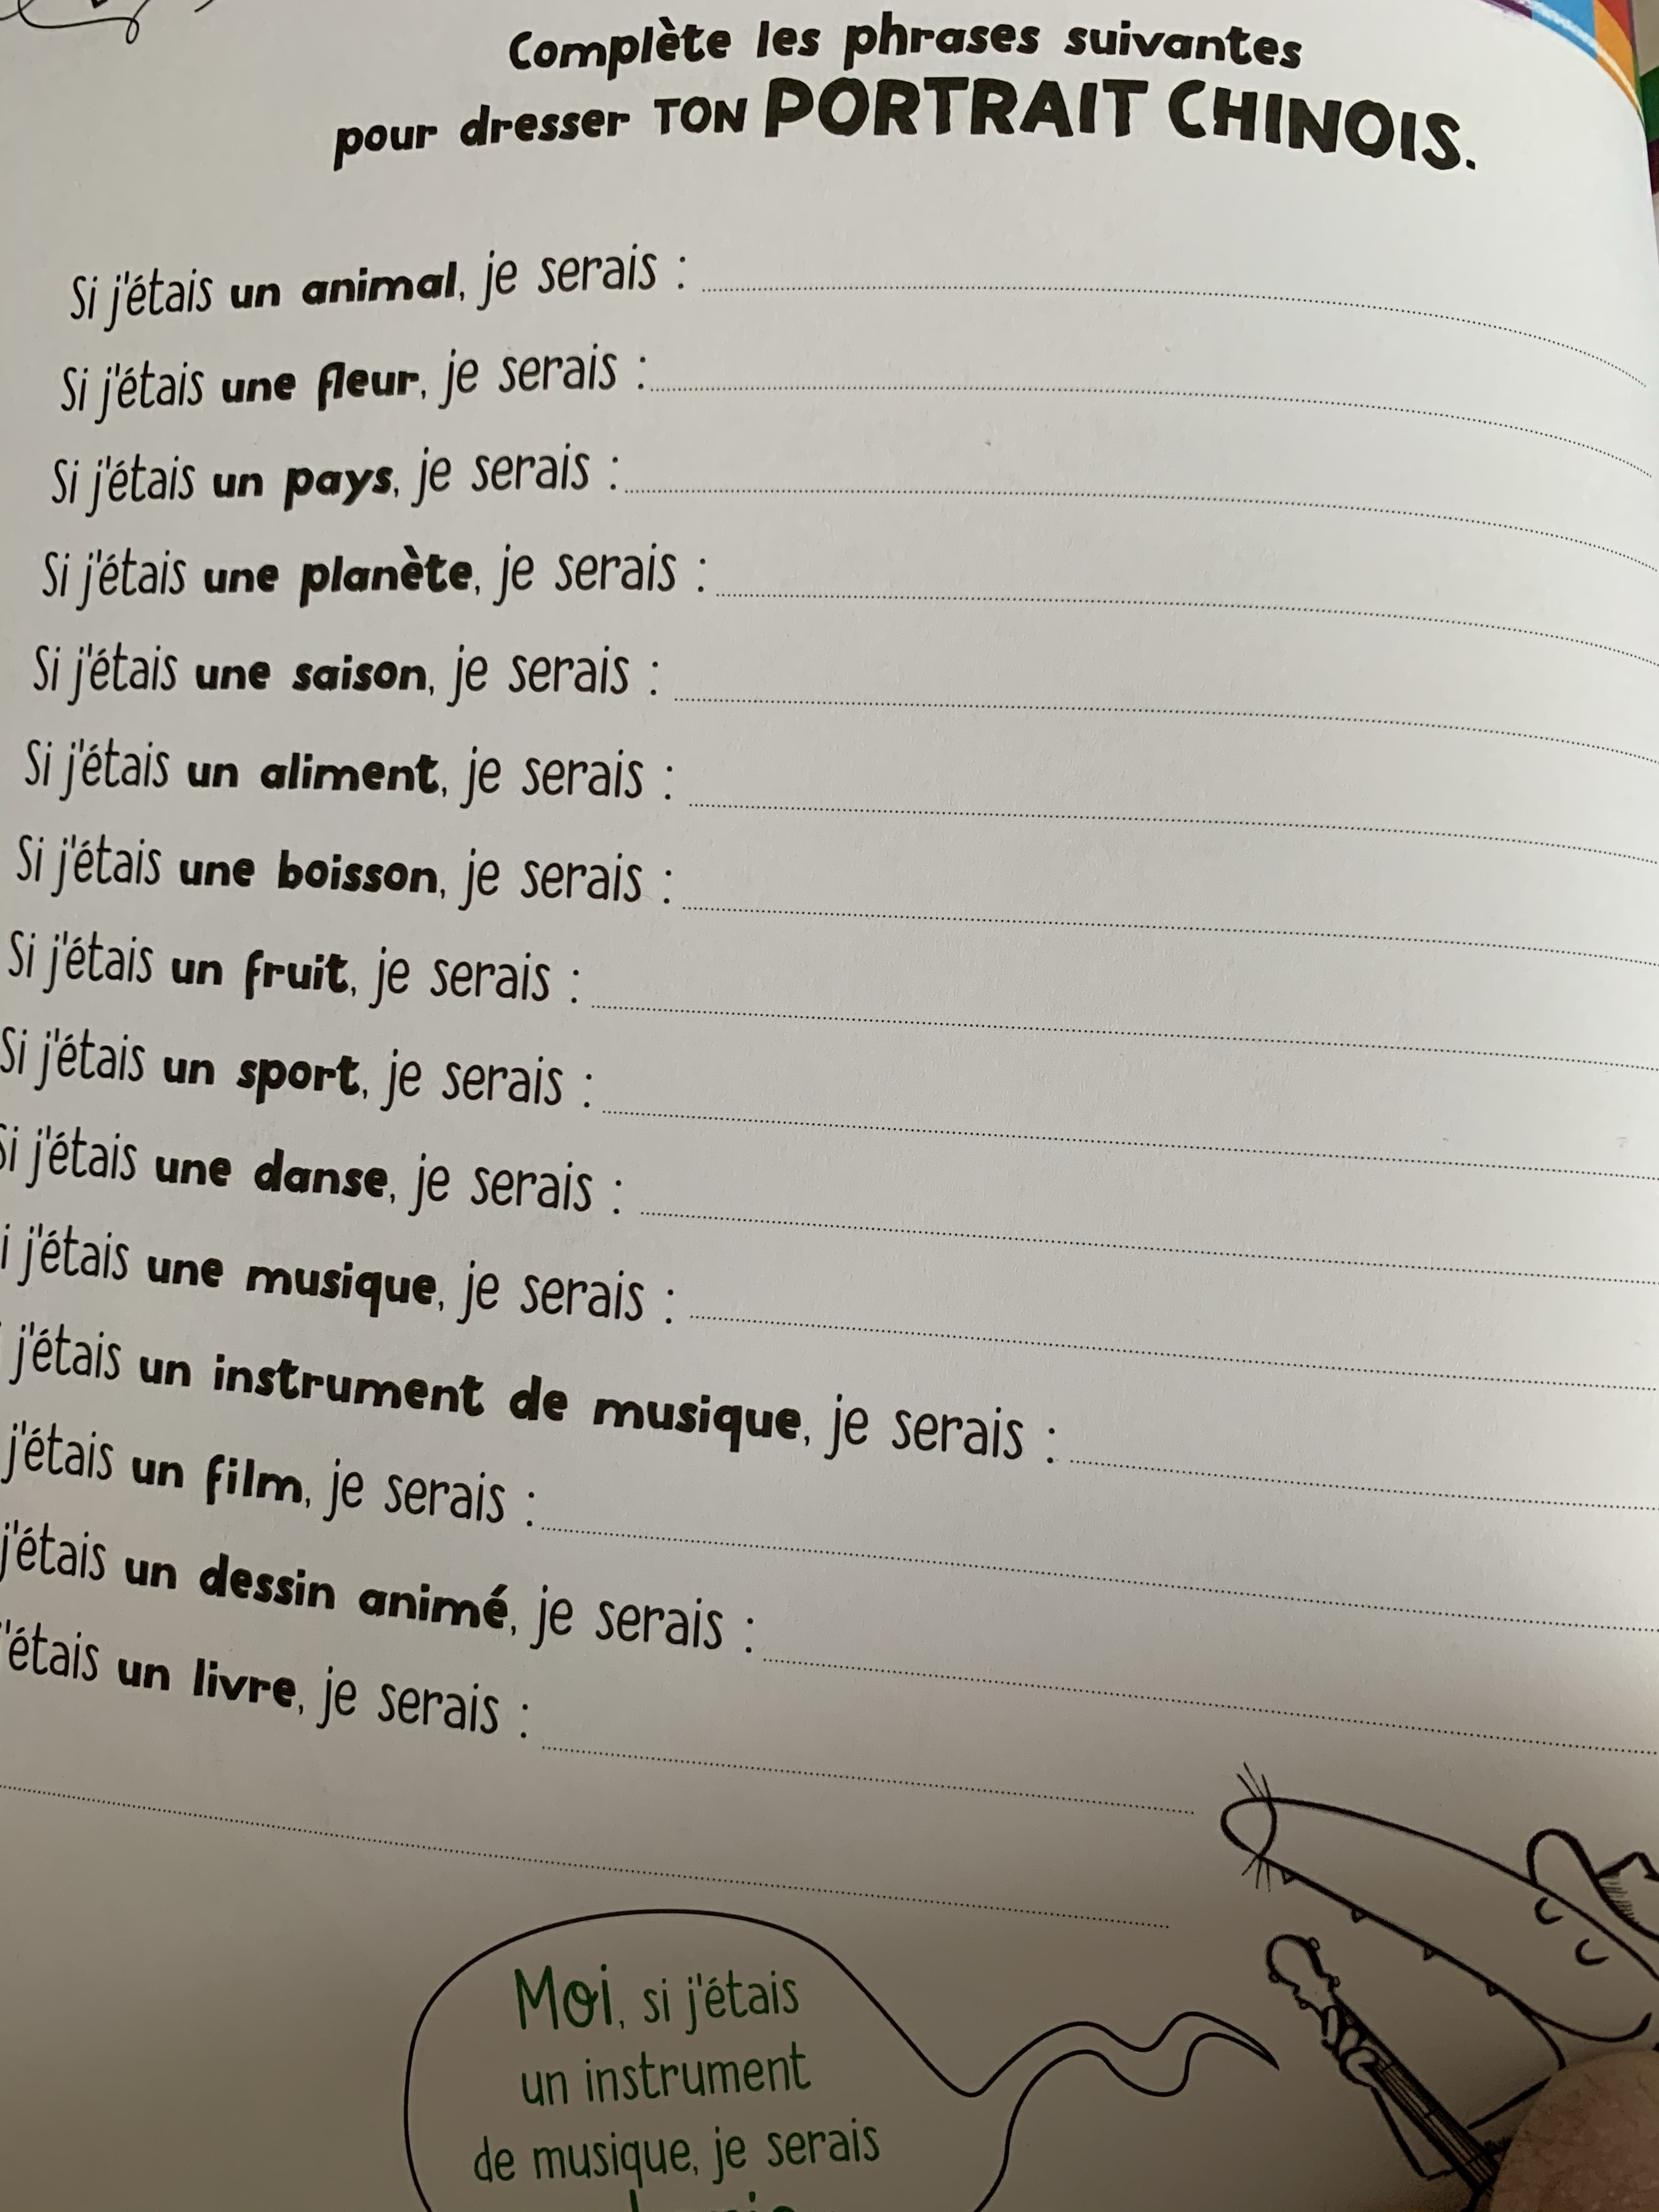 Complète les phrases suivantes
pour dresser TON PORTRAIT CHINOIS.
Si j'étais un animal, je serais :
Si j'étais une fleur, je serais :
Si j'étais un pays, je serais :
Si j'étais une planète, je serais :
Si j'étais une saison, je serais :
Si j'étais un aliment, je serais :
Si j'étais une boisson, je serais :
Si j'étais un fruit, je serais :
Si j'étais un sport, je serais :
Si j'étais une danse, je serais :
i j'étais une musique, je serais :
j'étais un instrument de musique, je serais :
j'étais un film, je serais :
j'étais un dessin animé, je serais :
'étais un livre, je serais :
Moi, si j'étais
un instrument
de musique, je serais